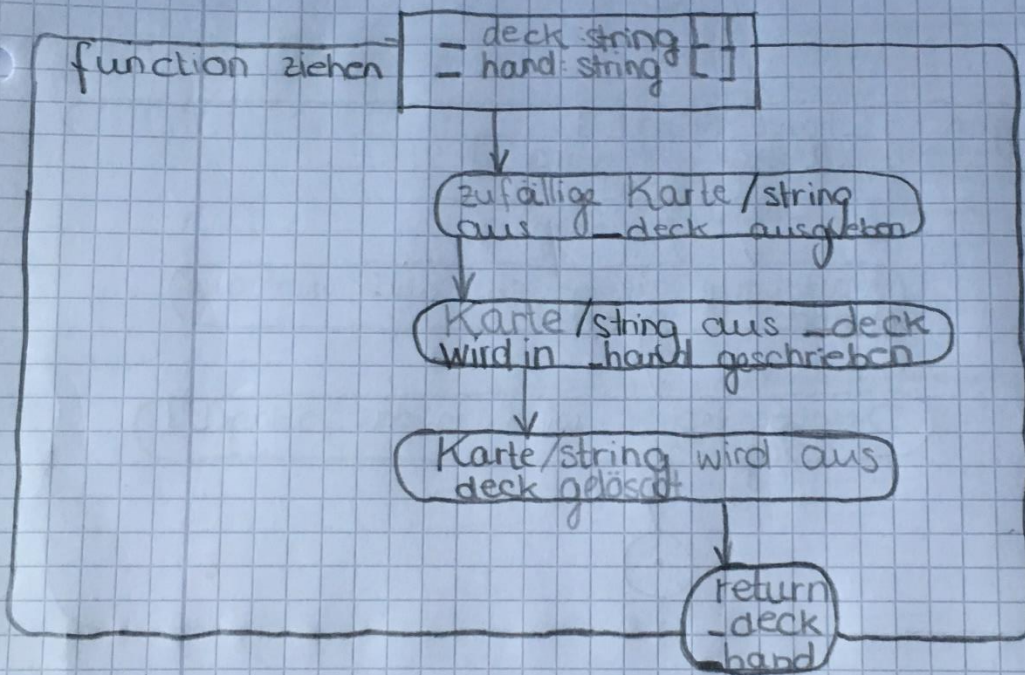 function ziehen
_ deck : string []
_ hand : string []
zufällige Karte/string
aus _deck ausgeben
Karte/string aus _deck
wird in _hand geschrieben
Karte/string wird aus
deck gelöscht
return
_deck
_hand